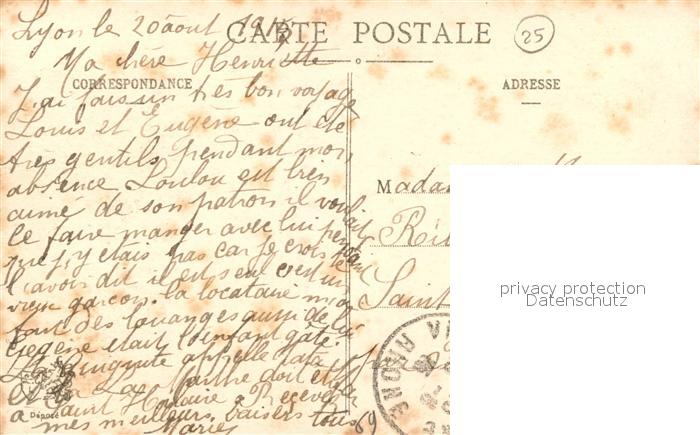 CARTE POSTALE
25
Lyon le 20 août 1915
Ma chère Henriette
CORRESPONDANCE
ADRESSE
J'ai fais un très bon voyage
Louis et Eugène ont été
très gentils pendant mon
absence Loulou est bien
aimé de son patron il voulait
le faire manger avec lui pendant
que j'y étais pas car je crois te
l'avoir dit il est seul c'est un
vieux garçon. la locataire m'a
fait des louanges aussi de lui
Eugène était l'enfant gâté
appelle tata
Marthe doit être
à Saint Hilaire a Recevez
mes meilleurs baisers tous
Marie
Madam
Saint
RHONE
69
Déposé
privacy protection
Datenschutz